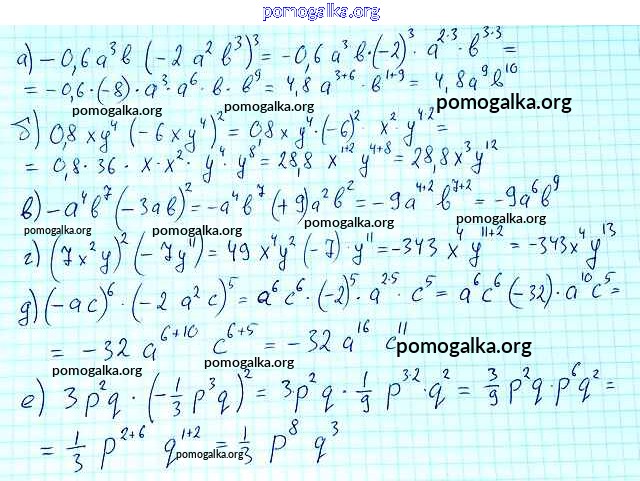 pomogalka.org
а) −0,6a³b (−2a²b³)³ = −0,6a³b·(−2)³·a^{2·3}·b^{3·3} =
= −0,6·(−8)·a³·a⁶·b·b⁹ = 4,8a^{3+6}·b^{1+9} = 4,8a⁹b¹⁰
pomogalka.org pomogalka.org pomogalka.org
б) 0,8xy⁴ (−6xy⁴)² = 0,8xy⁴·(−6)²·x²·y^{4·2} =
= 0,8·36·x·x²·y⁴·y⁸ = 28,8 x^{1+2} y^{4+8} = 28,8x³y¹²
pomogalka.org pomogalka.org pomogalka.org
в) −a⁴b⁷(−3ab)² = −a⁴b⁷(+9)a²b² = −9a^{4+2}b^{7+2} = −9a⁶b⁹
pomogalka.org pomogalka.org pomogalka.org
г) (7x²y)²(−7y¹¹) = 49x⁴y²(−7)·y¹¹ = −343x⁴y^{11+2} = −343x⁴y¹³
pomogalka.org pomogalka.org
д) (−ac)⁶·(−2a²c)⁵ = a⁶c⁶·(−2)⁵·a^{2·5}·c⁵ = a⁶c⁶(−32)·a¹⁰c⁵ =
= −32a^{6+10} c^{6+5} = −32a¹⁶c¹¹
pomogalka.org pomogalka.org pomogalka.org
е) 3p²q·(−1/3p³q)² = 3p²q·1/9p^{3·2}·q² = 3/9p²q·p⁶q² =
= 1/3p^{2+6} q^{1+2} = 1/3p⁸q³
pomogalka.org